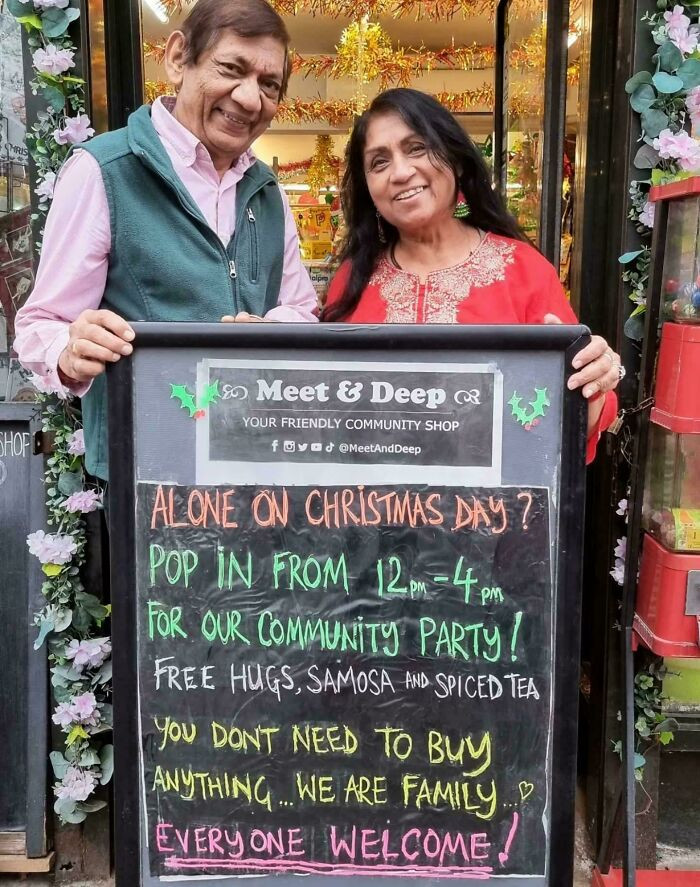 Meet & Deep
YOUR FRIENDLY COMMUNITY SHOP
@MeetAndDeep
ALONE ON CHRISTMAS DAY?
POP IN FROM 12pm-4pm
FOR OUR COMMUNITY PARTY!
FREE HUGS, SAMOSA AND SPICED TEA
YOU DONT NEED TO BUY
ANYTHING...WE ARE FAMILY...♡
EVERYONE WELCOME!
SHOP